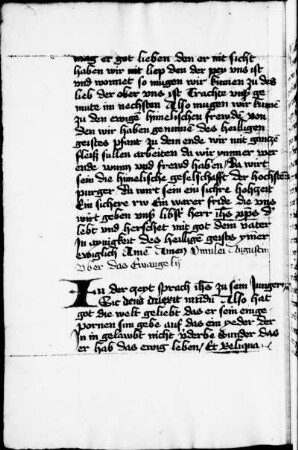 mag er got lieben den er nit sicht
haben wir nit liep den der pey vns ist
vnd wonnet so mugen wir kumen zu des
lieb der ober vns ist Trachte vnser ge
mute im nechsten Also mugen wir kume
zu den ewige himelischen frewde von
den wir haben genumen des heiligen
geistes pfant zu dem ende wir mit gancze
fleiß sullen arbeiten da wir ymmer wer
ende wunn vnd frewd haben / da wirt
sein die himelische geselschafft der hochsten
purger da wirt sein ein sichre hohzeit
Ein sichere rw Ein warer fride die vns
wirt geben vnser libster herr ihs xps d
lebt vnd herschet mit got dem vater
In aynigkeit des heilige geistes ymer
ewiglich Ame Amen Omilei Augustin
Vber das Ewangelij
In der czeyt sprach ihs zu sein Jungern
Sic deus dilexit mudu Also hat
got die welt geliebt das er sein einge
pornen sun gebe auf das ein yeder der
In in gelawbt nicht v'derbe Sunder das
er hab das ewig leben / Et Reliqua